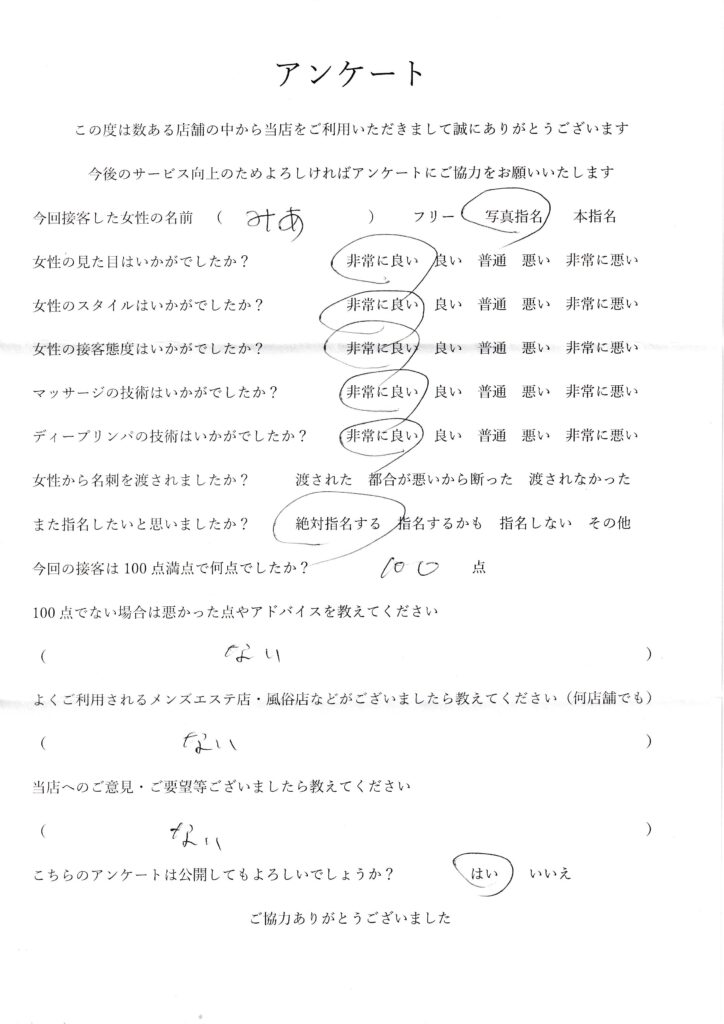 アンケート
この度は数ある店舗の中から当店をご利用いただきまして誠にありがとうございます
今後のサービス向上のためよろしければアンケートにご協力をお願いいたします
今回接客した女性の名前 （ みあ ） フリー 写真指名 本指名
女性の見た目はいかがでしたか？ 非常に良い 良い 普通 悪い 非常に悪い
女性のスタイルはいかがでしたか？ 非常に良い 良い 普通 悪い 非常に悪い
女性の接客態度はいかがでしたか？ 非常に良い 良い 普通 悪い 非常に悪い
マッサージの技術はいかがでしたか？ 非常に良い 良い 普通 悪い 非常に悪い
ディープリンパの技術はいかがでしたか？ 非常に良い 良い 普通 悪い 非常に悪い
女性から名刺を渡されましたか？ 渡された 都合が悪いから断った 渡されなかった
また指名したいと思いましたか？ 絶対指名する 指名するかも 指名しない その他
今回の接客は100点満点で何点でしたか？ 100 点
100点でない場合は悪かった点やアドバイスを教えてください
（ ない ）
よくご利用されるメンズエステ店・風俗店などがございましたら教えてください（何店舗でも）
（ ない ）
当店へのご意見・ご要望等ございましたら教えてください
（ ない ）
こちらのアンケートは公開してもよろしいでしょうか？ はい いいえ
ご協力ありがとうございました